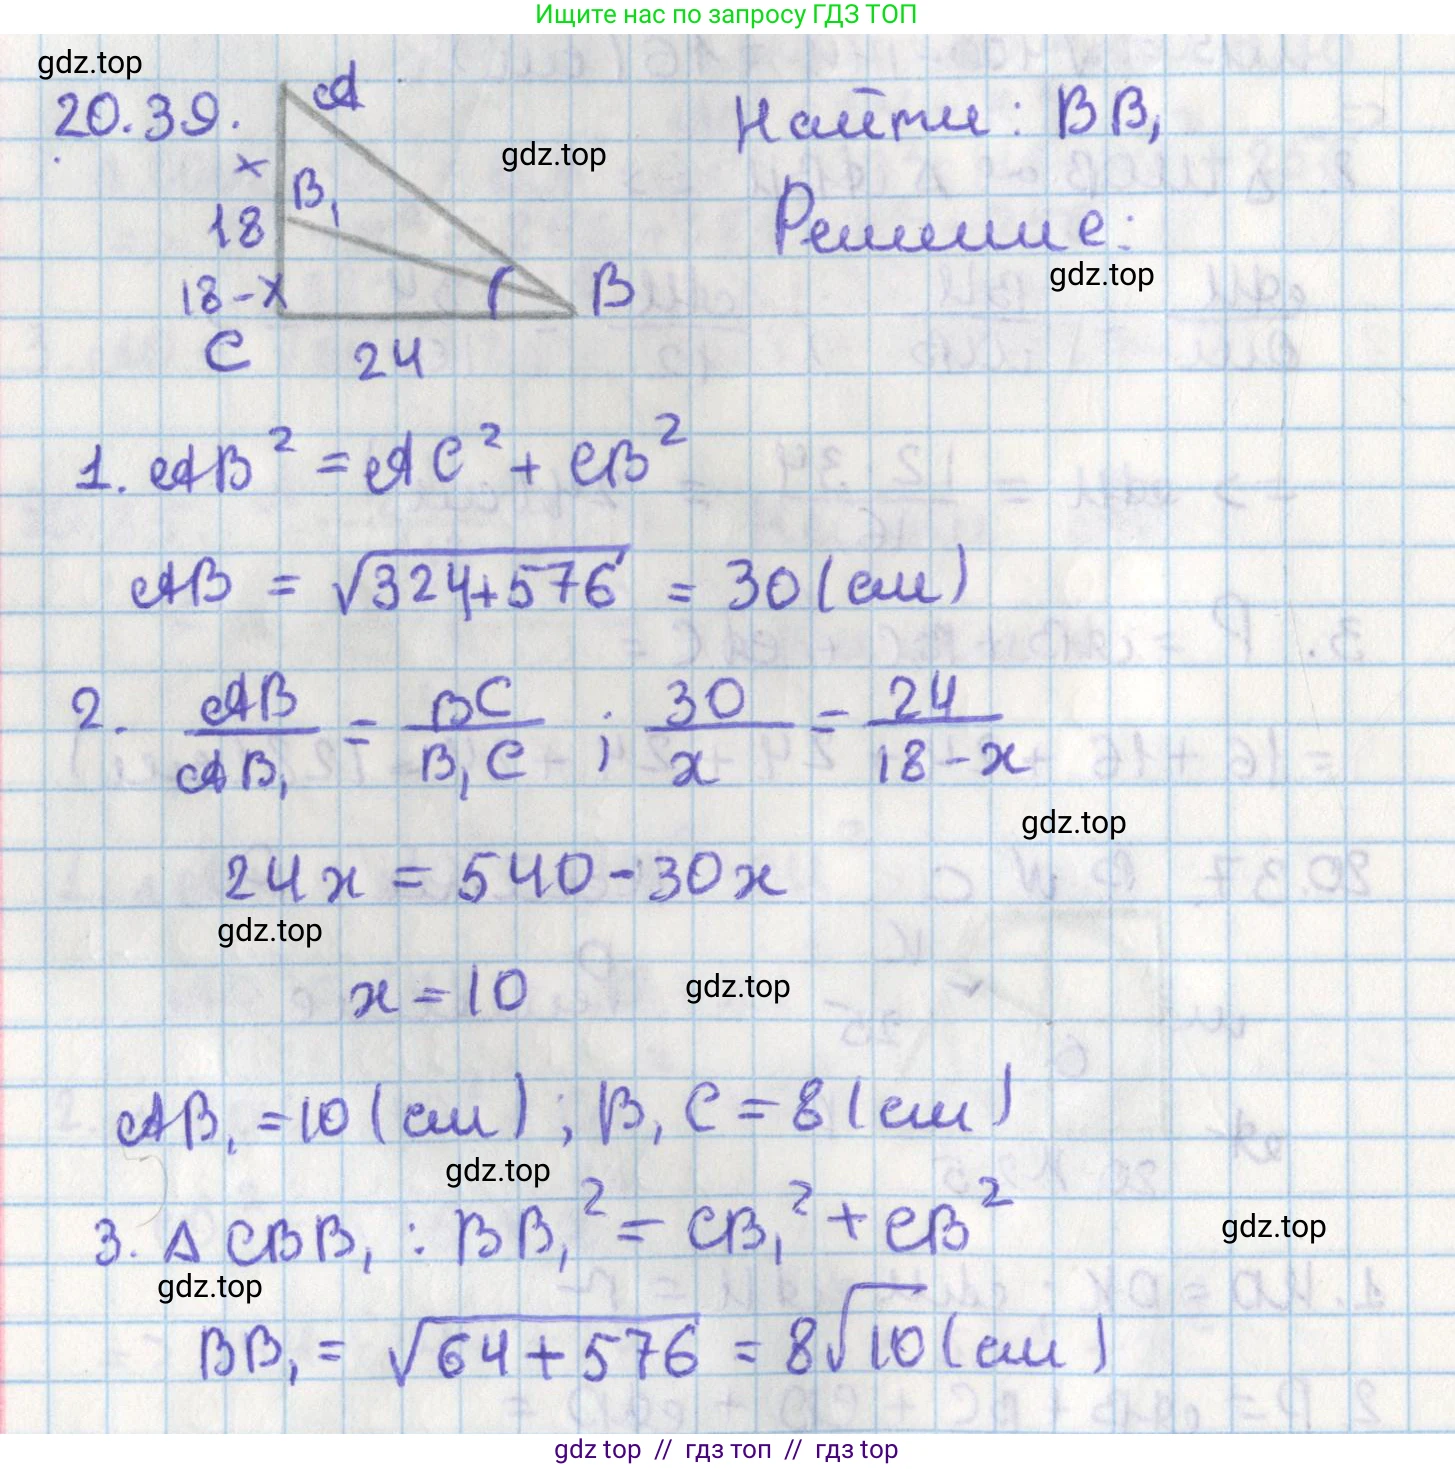 Ищите нас по запросу ГДЗ ТОП
gdz.top
20.39.
A
Найти: BB₁
x
gdz.top
B₁
18
Решение:
18-x
B
gdz.top
C
24
1. AB² = AC² + CB²
AB = √324+576 = 30 (см)
2. AB/AB₁ = BC/B₁C ; 30/x = 24/18-x
gdz.top
24x = 540-30x
gdz.top
x = 10
gdz.top
AB₁ = 10 (см) ; B₁C = 8 (см)
gdz.top
3. Δ CBB₁ : BB₁² = CB₁² + CB²
gdz.top
gdz.top
BB₁ = √64+576 = 8√10 (см)
gdz top // гдз топ // гдз top